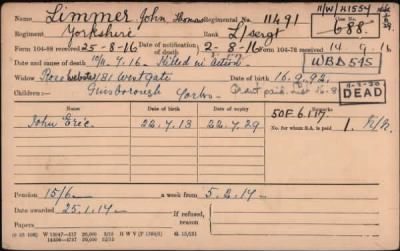 11/W/41554
Limmer John Thomas Regimental No. 11491
USE
688.
Regiment Yorkshire Rank L/sergt
Form 104-88 received 25-8-16 Date of notification of death 2-8-16 Form 104-76 received 14.9.16
Date and cause of death 10/11.7.16. Killed in action WBD545
Widow Rose 181 Westgate Date of birth 16.9.92.
Children:— Guisborough Yorks.
DEAD
Date of birth Date of expiry
SOF 6.1.17.
No. for whom S.A. is paid 1.
John Eric 22.7.13 22.7.29
Pension 15/6 a week from 5.2.17
Date awarded 25.1.17 If refused, reason
Papers